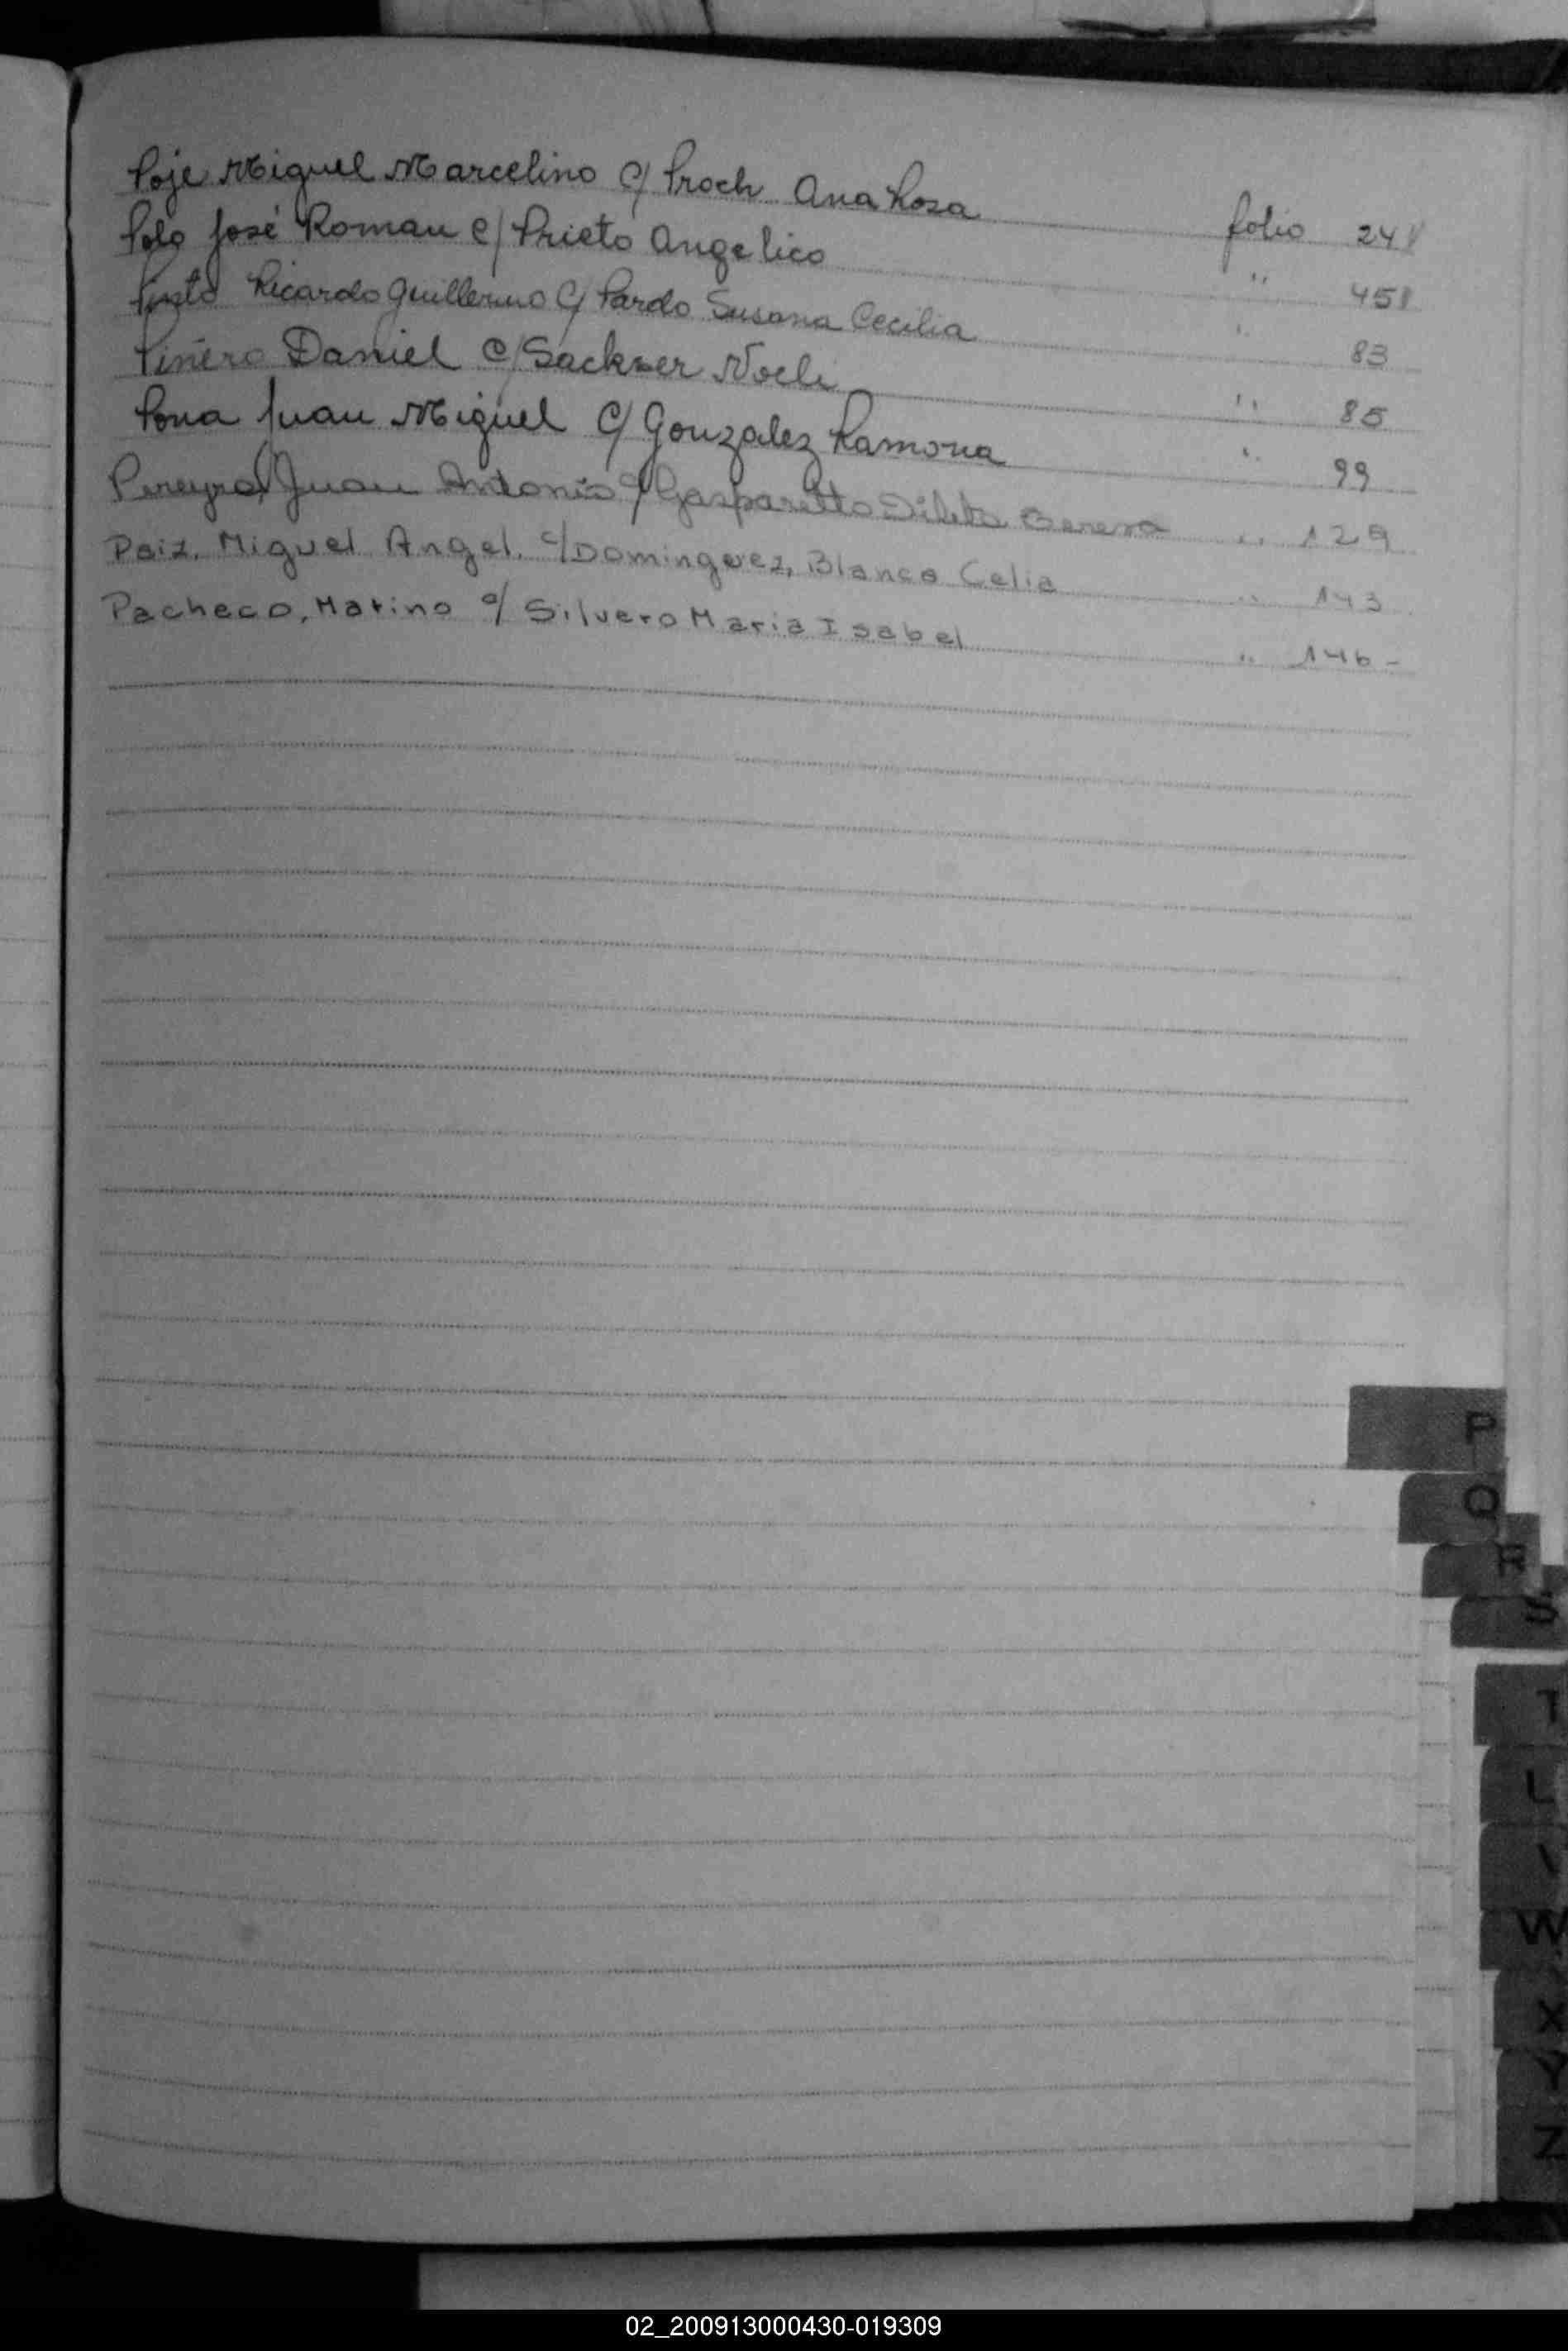 Poje Miguel Marcelino c/ Proch Ana Rosa folio 24
Polo José Roman c/ Prieto Angelico " 45
Ricardo Guillermo c/ Pardo Susana Cecilia " 83
Piñero Daniel c/ Sackser Noeli " 85
Pona Juan Miguel c/ Gonzalez Ramona " 99
Pereyra Juan Antonio c/ Gasparetto " 129
Paiz. Miguel Angel. c/ Dominguez, Blanca Celia " 143
Pacheco, Marino c/ Silvero Maria Isabel " 146 -
P
Q
R
S
T
W
X
Y
Z
02_200913000430-019309